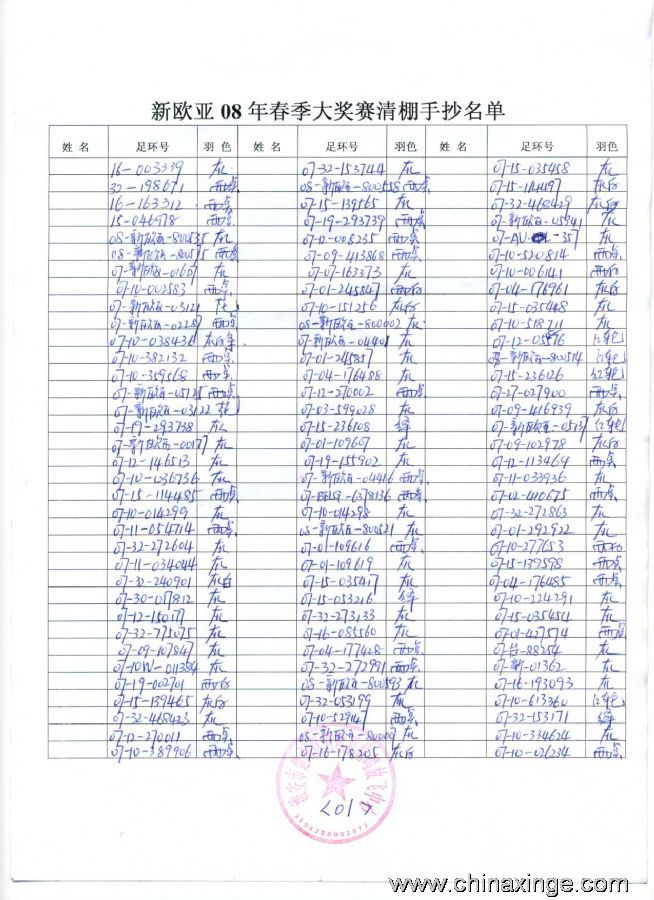 新欧亚 08 年春季大奖赛清棚手抄名单
姓 名 足环号 羽色 姓 名 足环号 羽色 姓 名 足环号 羽色
16-003339 灰 07-32-153744 灰 07-15-035458 灰
32-198671 雨点 08-新欧亚-800558 雨点 07-15-114497 灰白
16-163312 雨点 07-15-139565 灰 07-32-468429 灰白
15-046978 雨点 07-19-293739 雨点 07-新欧亚-05941 灰
08-新欧亚-800535 灰 07-12-008235 雨点 07-AU -357 灰
08-新欧亚-80575 雨点 07-09-413868 雨点 07-10-520814 雨点
07-新欧亚-01607 灰 07-07-163373 灰 07-10-006141 雨点
07-10-002583 雨点 07-01-245847 雨白 07-04-176961 灰白
07-新欧亚-03121 07-10-151256 灰白 07-15-035448 灰
07-新欧亚-02287 雨点 08-新欧亚-800002 灰 07-10-518711 灰
07-10-038436 07-新欧亚-04401 灰 07-12-05 76
07-10-382132 雨点 07-01-245857 灰 08-新欧亚-800514 红轮
07-10-359568 雨点 07-04-176488 灰 07-15-236126 红轮
07-新欧亚-05125 雨点 07-12-270002 雨点 07-27-027900 雨点
07-新欧亚-03122 07-03-599028 灰 07-09-416939 灰白
07-19-293738 灰 07-15-236108 绛 07-新欧亚-05137 红轮
07-新欧亚-00177 灰 07-01-109607 灰 07-09-102978 灰白
07-12-146513 灰 07-19-155902 灰 07-12-113469 雨点
07-10-036736 灰 07-新欧亚-04416 雨点 07-11-033936 灰
07-15-114485 雨点 07-BELG-6378136 雨点 07-02-410675 雨点
07-10-014299 灰 07-10-014298 灰 07-32-272863 灰
07-11-054714 雨点 08-新欧亚-800521 灰 07-01-292922 灰
07-32-272604 灰 07-01-109616 雨点 07-10-277653 雨白
07-11-034044 灰 07-01-109619 灰 07-15-139598 雨点
07-32-240901 灰白 07-15-035417 灰 07-04-176485 雨点
07-30-017812 灰 07-15-053216 绛 07-10-224291 灰
07-12-150177 灰 07-32-273133 灰 07-15-035451 灰
07-32-275075 灰 07-16-085560 灰 07-01-427574 雨点
07-09-107847 灰 07-04-177428 雨点 07-台-88254 灰
07-10W-011384 灰 07-32-272991 雨点 07-新-01362 灰
07-19-002701 雨白 08-新欧亚-800593 灰 07-16-193093 灰
07-15-139465 灰白 07-32-053199 灰 07-10-613360 红轮
07-32-468423 灰 07-10-529147 雨点 07-32-153171 绛
07-12-270011 雨点 08-新欧亚-80000 灰 07-10-334624 灰
07-10-389906 雨点 07-16-178205 灰白 07-10-026234 雨点
3209280003073
www.chinaxinge.com